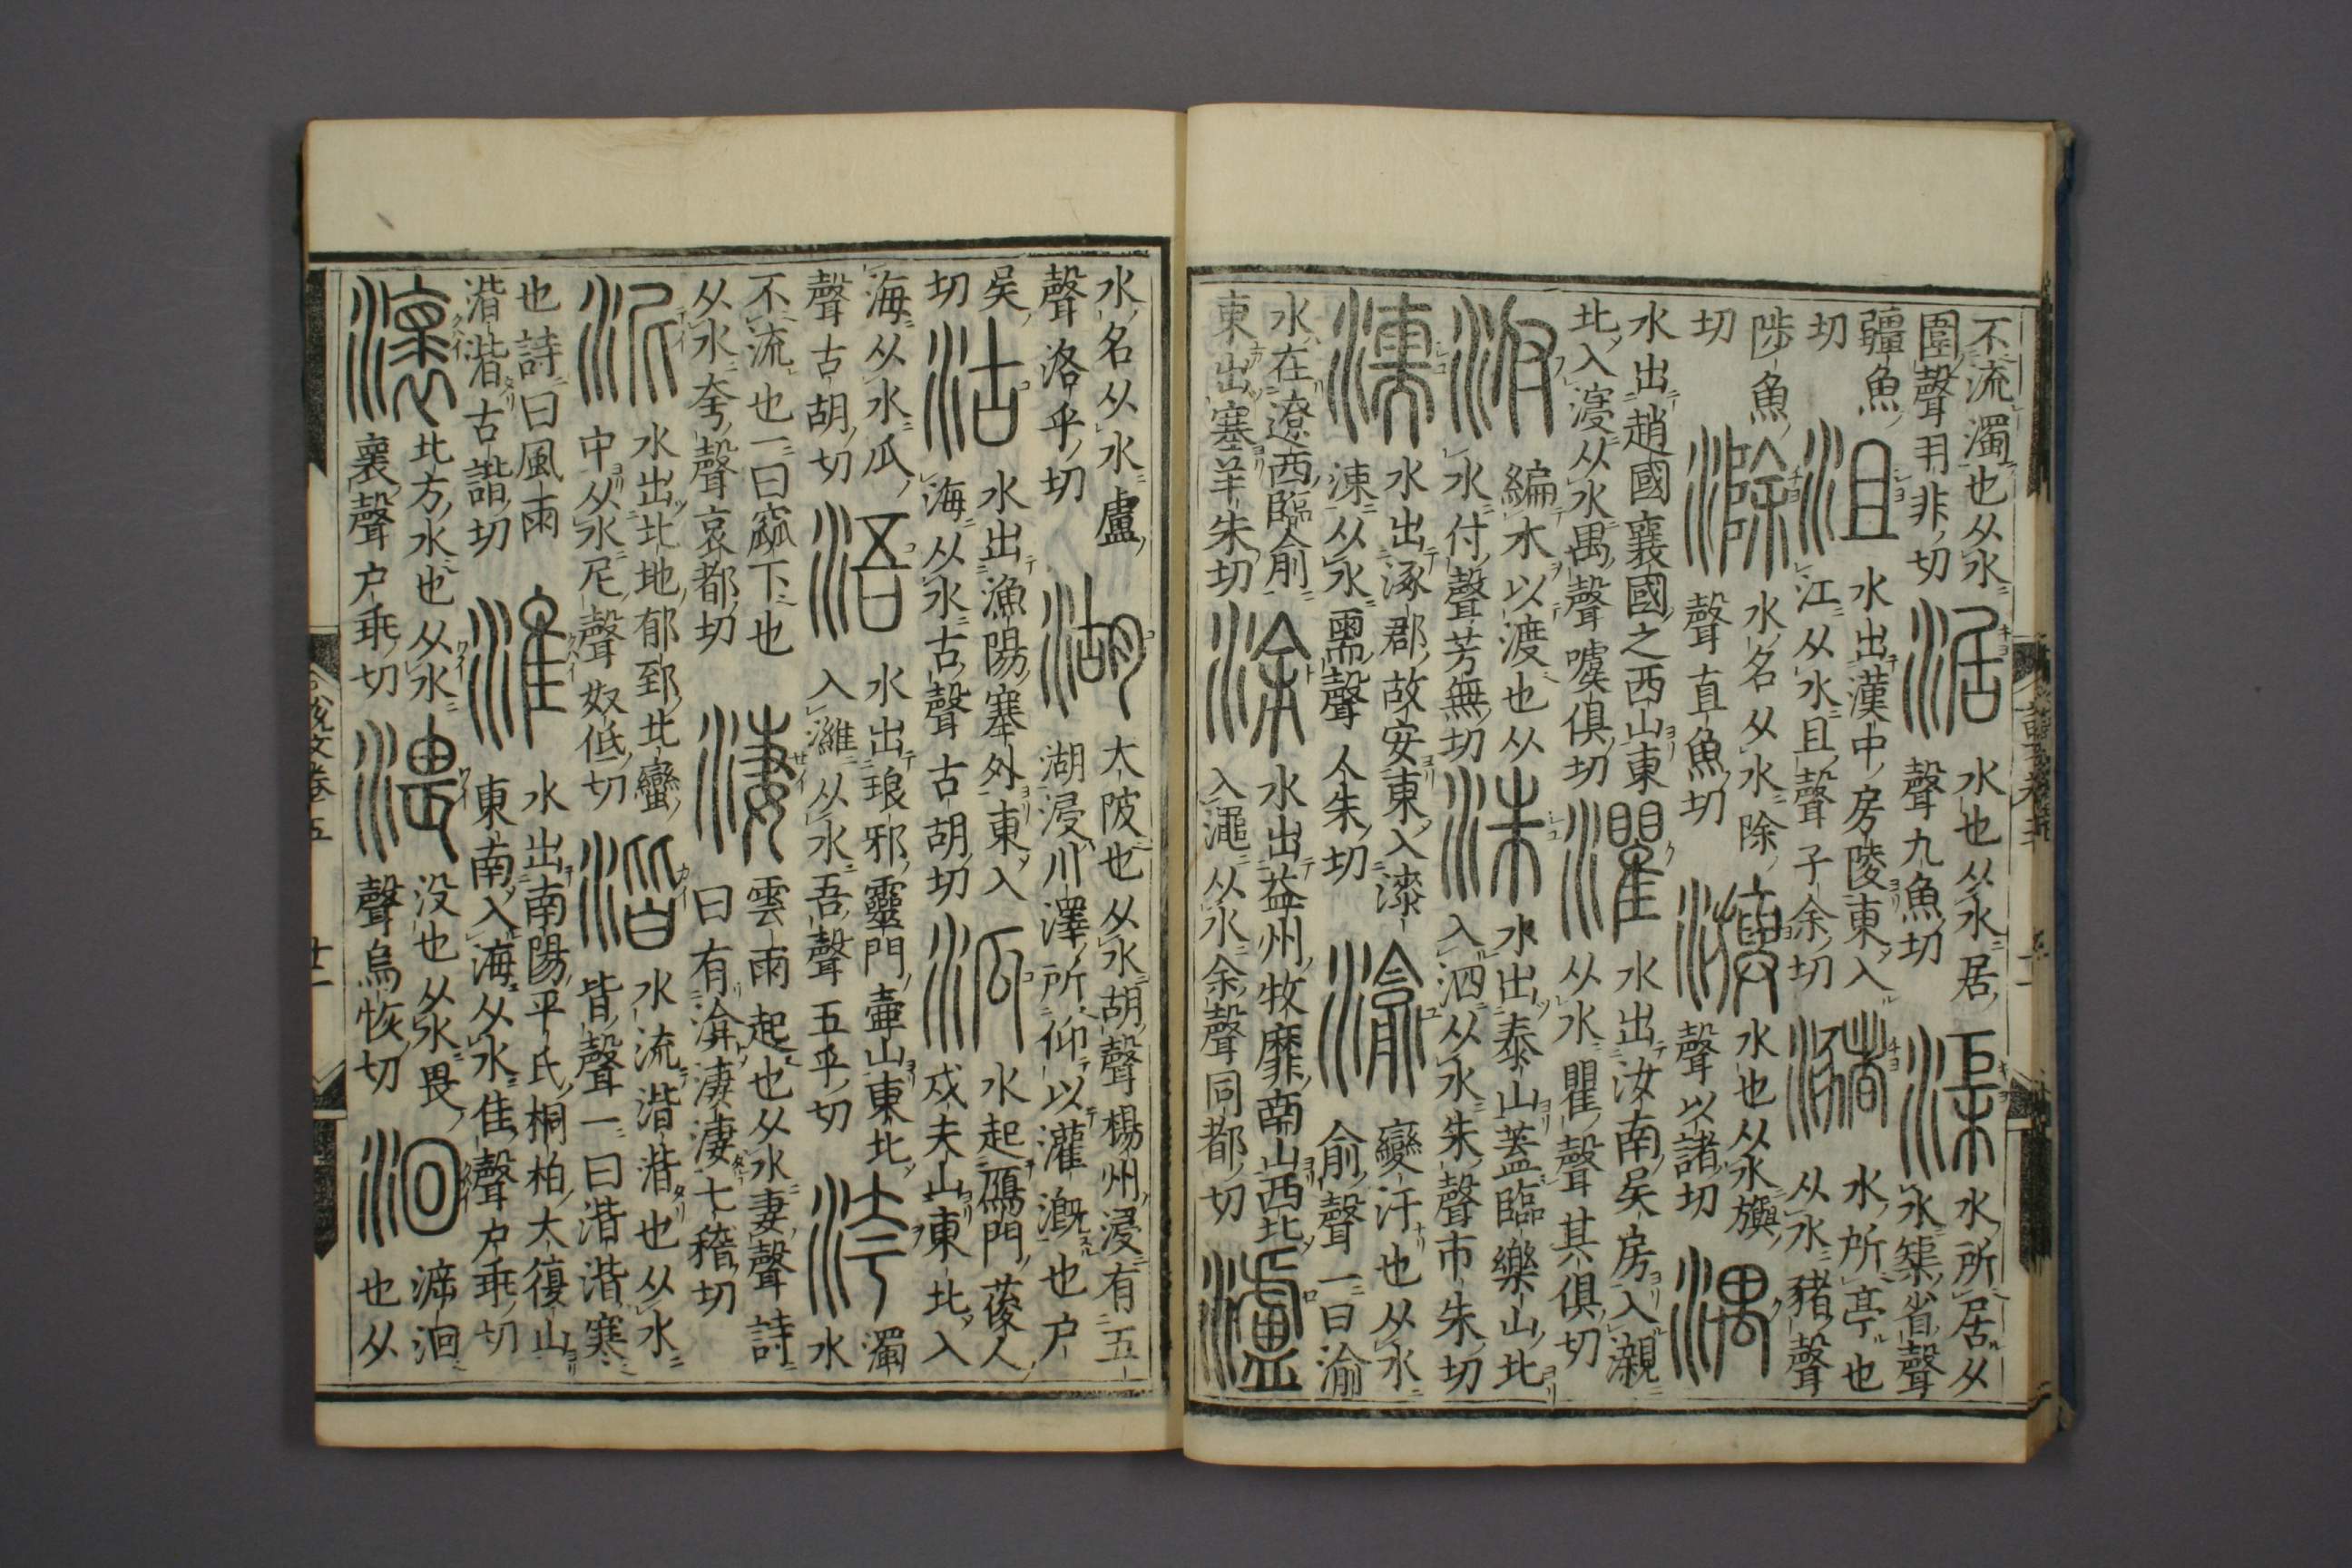 不流濁也从水
圍聲羽非切
涺
水也从水居
聲九魚切
渠
水所居从
水榘省聲
彊魚
切
沮
水出漢中房陵東入
江从水且聲子余切
瀦
水所亭也
从水豬聲
陟魚
切
滁
水名从水除
聲直魚切
㶛
水也从水旟
聲以諸切
湡
水出趙國襄國之西山東
北入濅从水禺聲噳俱切
灈
水出汝南吳房入瀙
从水瞿聲其俱切
泭
編木以渡也从
水付聲芳無切
洙
水出泰山蓋臨樂山北
入泗从水朱聲市朱切
濡
水出涿郡故安東入漆
涑从水需聲人朱切
渝
變汙也从水
俞聲一曰渝
水在遼西臨俞
東出塞羊朱切
涂
水出益州牧靡南山西北
入澠从水余聲同都切
瀘
水名从水盧
聲洛乎切
湖
大陂也从水胡聲楊州浸有五
湖浸川澤所仰以灌溉也户
吳
切
沽
水出漁陽塞外東入
海从水古聲古胡切
泒
水起鴈門葰人
戍夫山東北入
海从水瓜
聲古胡切
浯
水出琅邪靈門壷山東北
入濰从水吾聲五乎切
洿
濁
水
不流也一曰窳下也
从水夸聲哀都切
淒
雲雨起也从水妻聲詩
曰有渰淒淒七稽切
泥
水出北地郁郅北蠻
中从水尼聲奴低切
湝
水流湝湝也从水
皆聲一曰湝湝寒
也詩曰風雨
湝湝古諧切
淮
水出南陽平氏桐柏大復山
東南入海从水隹聲户乖切
瀤
北方水也从水
褱聲户乖切
渨
没也从水畏
聲烏恢切
洄
㴑洄
也从
説文卷五
廿二